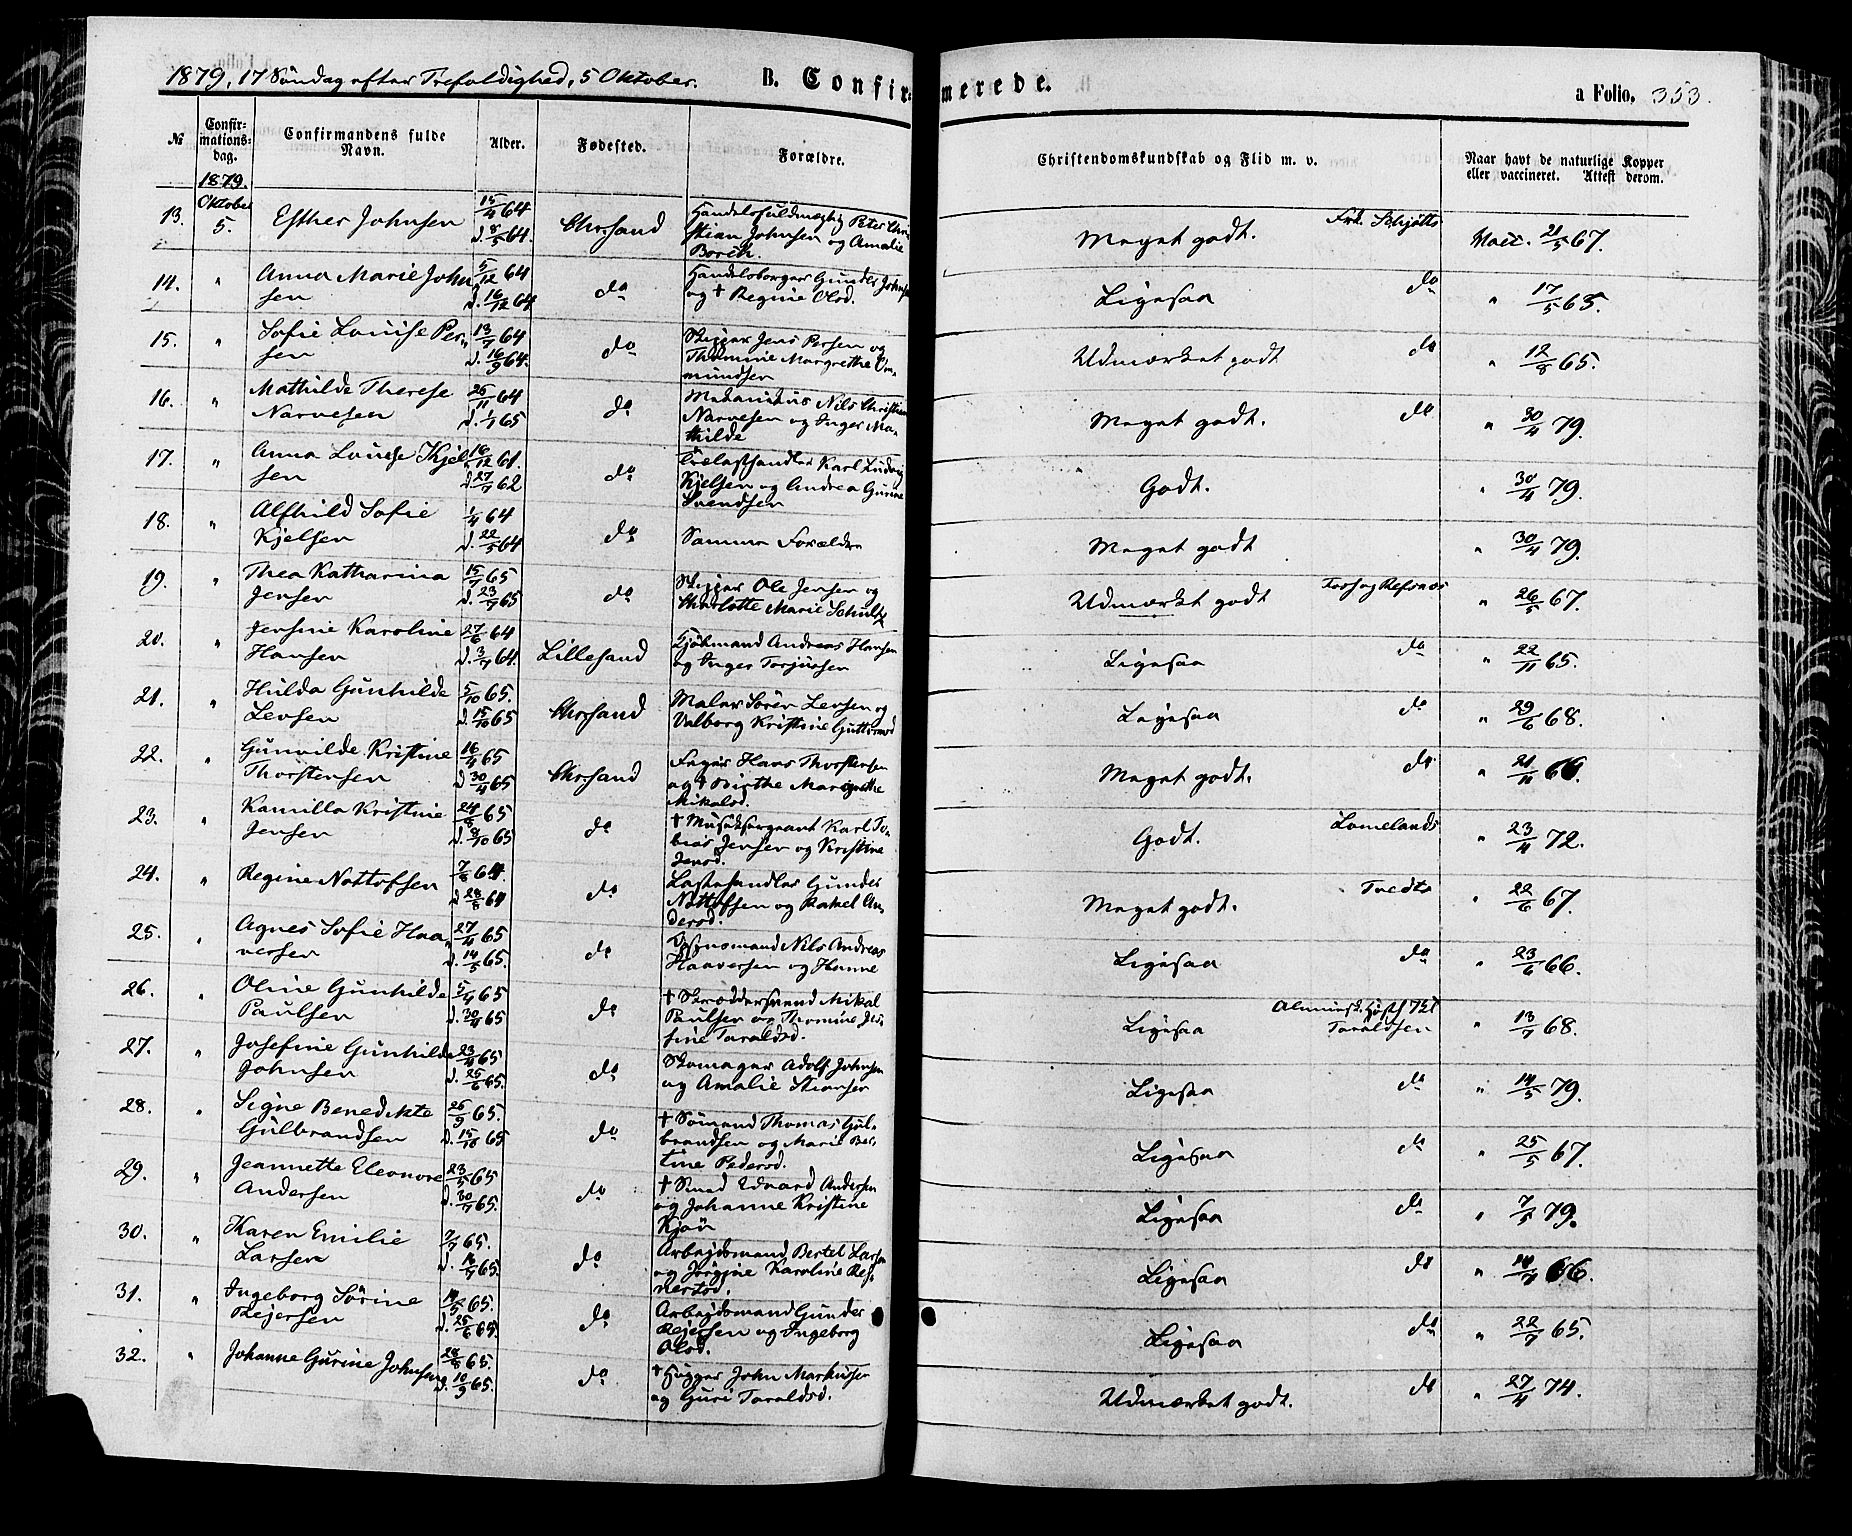 1879, 17 Søndag efter Trefoldighed, 5 Oktober.
B. Confirmerede.
a Folio, 353.
№
Confirmationsdag.
Confirmandens fulde Navn.
Alder.
Fødested.
Forældre.
Christendomskundskab og Flid m. v.
Naar havt de naturlige Kopper
eller vaccineret. Attest derom.
1879.
Oktober
13. 5. Esther Johnsen 15/4 64 d. 8/5 64. Chrsand Handelsfuldmægtig Peter Christian Johnsen og Amalie Borch. Meget godt. Frk. Schjøtts Vacc. 21/5 67.
14. " Anna Marie Johnsen 5/12 64 d. 16/12 64 do Handelsborger Gunder Johnsen og † Regine Olsd. Ligesaa do " 17/5 65.
15. " Sofie Louise Persen 13/7 64 d. 16/9 64. do Skipper Jens Persen og Thomine Margrethe Ommundsen Udmærket godt do " 12/8 65.
16. " Mathilde Therese Narvesen 26/11 64 d. 1/1 65 do Mekanikus Nils Christian Narvesen og Inger Mathilde Meget godt. do " 30/4 79.
17. " Anna Louise Kjelsen 16/12 61. d. 27/7 62 do Trælasthandler Karl Ludvig Kjelsen og Andrea Gurine Svendsen Godt. " 30/4 79.
18. " Alfhild Sofie Kjelsen 1/4 64 d. 22/5 64 do Samme Forældre Meget godt " 30/4 79.
19. " Thea Katharina Jensen 15/7 65 d. 23/7 65 do Skipper Ole Jensen og Charlotte Marie Schultz Udmærket godt Foss og Refsnes " 26/5 67.
20. " Jensine Karoline Hansen 27/6 64 d. 3/7 64. Lillesand Kjøbmand Andreas Hansen og Inger Torjussen Ligesaa do " 22/11 65.
21. " Hulda Gunhilde Levsen 5/10 65. d. 15/10 65 Chrsand Maler Sören Levsen og Valborg Kristine Guttormsd Ligesaa do " 29/6 68.
22. " Gunvilde Kristine Thorstensen 16/4 65 d. 30/4 65 Chrsand Fager Hans Thorstensen og † Birthe Margrethe Mikalsd. Meget godt. do " 21/11 66.
23. " Kamilla Kristine Jensen 24/8 65 d. 8/10 65 do † Musiksergeant Karl Tobias Jensen og Kristine Jensd. Godt. Lomelands " 23/4 72.
24. " Regine Nottofsen 7/8 64. d. 28/8 64 do Lastehandler Gunder Nottofsen og Rakel Andersd. Meget godt. Tvedts " 22/6 67.
25. " Agnes Sofie Haaversen 27/4 65 d. 14/5 65. do Nils Andreas Haaversen og Hanne Ligesaa do " 23/6 66.
26. " Oline Gunhilde Paulsen 5/4 65 d. 30/4 65 do † Skræddersvend Mikal Paulsen og Thomine Josfine Taraldsd. Ligesaa Taraldsen " 13/7 68.
27. " Josefine Gunhilde Johnsen 23/4 65 d. 25/6 65. do Skomager Adolf Johnsen og Amalie Ligesaa do " 14/5 79.
28. " Signe Benedikte Gulbrandsen 26/9 65. d. 15/10 65 do † Sømand Thomas Gulbrandsen og Marie Bertine Pedersd. Ligesaa do " 25/5 67.
29. " Jeannette Eleonore Andersen 23/5 65 d. 30/7 65. do † Smed Edvard Andersen og Johanne Kristine Kjøn Ligesaa do " 7/5 79.
30. " Karen Emilie Larsen 2/7 65. d. 16/7 65. do Arbejdsmand Bertel Larsen og Jörgine Karoline Ligesaa do " 14/7 66.
31. " Ingeborg Sörine Rejersen 14/5 65. d. 25/6 65. do Arbejdsmand Gunder Rejersen og Ingeborg Olsd. Ligesaa do " 22/7 65.
32. " Johanne Gurine Johnsen 28/8 65. d. 10/9 65. do † Hugger John Markussen og Guri Taraldsd. Udmærket godt. do " 27/4 74.